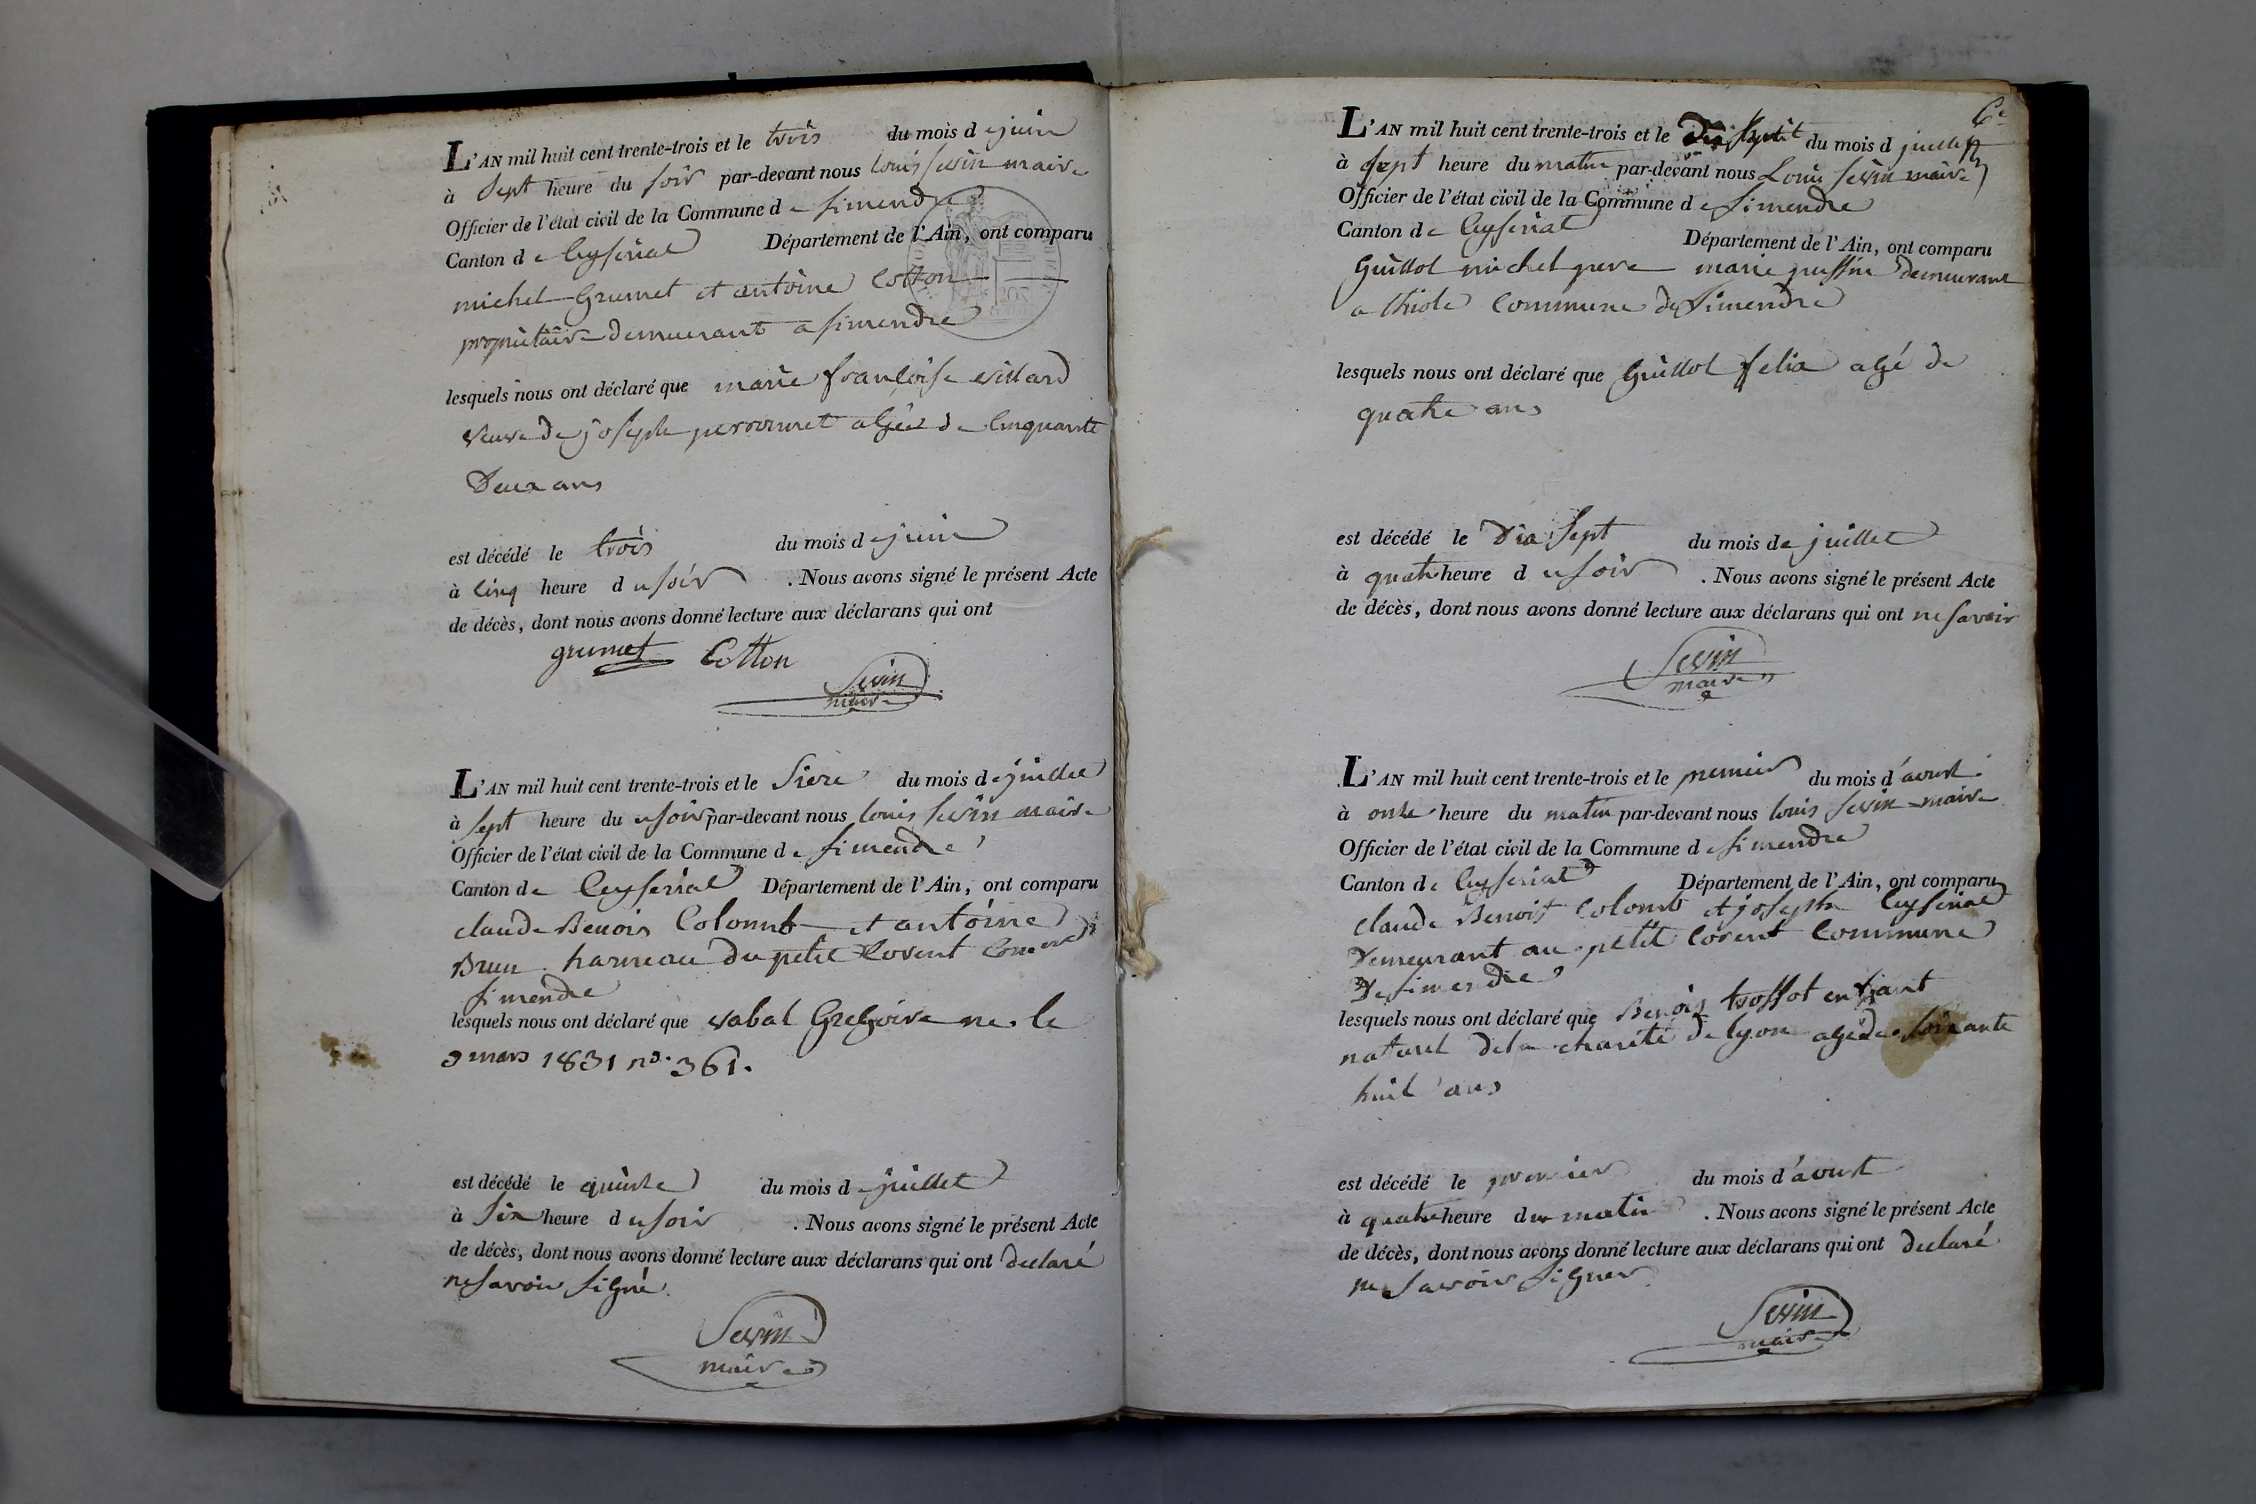 L'AN mil huit cent trente-trois et le trois du mois de juin
à Sept heure du soir par-devant nous Louis Sevin maire
Officier de l'état civil de la Commune de Simendre
Canton de Ceyseriat Département de l'Ain, ont comparu
michel Grumet et antoine Cotton
propriétaire demeurant a Simendre
lesquels nous ont déclaré que marie françoise Villard
veuve de joseph perrounet agée de Cinquante
Deux ans
est décédé le trois du mois de juin
à Cinq heure du soir. Nous avons signé le présent Acte
de décès, dont nous avons donné lecture aux déclarans qui ont
grumet Cotton
Sevin
maire
L'AN mil huit cent trente-trois et le Sieze du mois de juillet
à Sept heure du usoir par-devant nous Louis Sevin maire
Officier de l'état civil de la Commune de Simendre
Canton de Ceyseriat Département de l'Ain, ont comparu
claude Benois Colomb et antoine
Brun hameau du petit Corent
Simendre
lesquels nous ont déclaré que vabal Gregoire ne le
9 mars 1831 no. 361.
est décédé le quinze du mois de juillet
à Six heure du soir. Nous avons signé le présent Acte
de décès, dont nous avons donné lecture aux déclarans qui ont declaré
ne savoir signé.
Sevin
maire
6e
L'AN mil huit cent trente-trois et le Dix Sept du mois d juillet
à Sept heure du matin par-devant nous Louis Sevin maire
Officier de l'état civil de la Commune de Simendre
Canton de Ceyseriat Département de l'Ain, ont comparu
Guillot michel pere marie demeurant
a thiole Commune de Simendre
lesquels nous ont déclaré que Guillot felix agé de
quatre ans
est décédé le Dix Sept du mois de juillet
à quatre heure du soir. Nous avons signé le présent Acte
de décès, dont nous avons donné lecture aux déclarans qui ont ne savoir
Sevin
maire
L'AN mil huit cent trente-trois et le premier du mois d'avoust
à onze heure du matin par-devant nous Louis Sevin maire
Officier de l'état civil de la Commune de Simendre
Canton de Ceyseriat Département de l'Ain, ont comparu
claude Benoist Colomb et joseph Ceyseriat
Demeurant au petit Corent Commune
De Simendre
lesquels nous ont déclaré que Benois trossot enfant
naturel de la charité de lyon agé de soixante
huit ans
est décédé le premier du mois d'avoust
à quatre heure du matin. Nous avons signé le présent Acte
de décès, dont nous avons donné lecture aux déclarans qui ont declaré
ne savoir signer
Sevin
maire